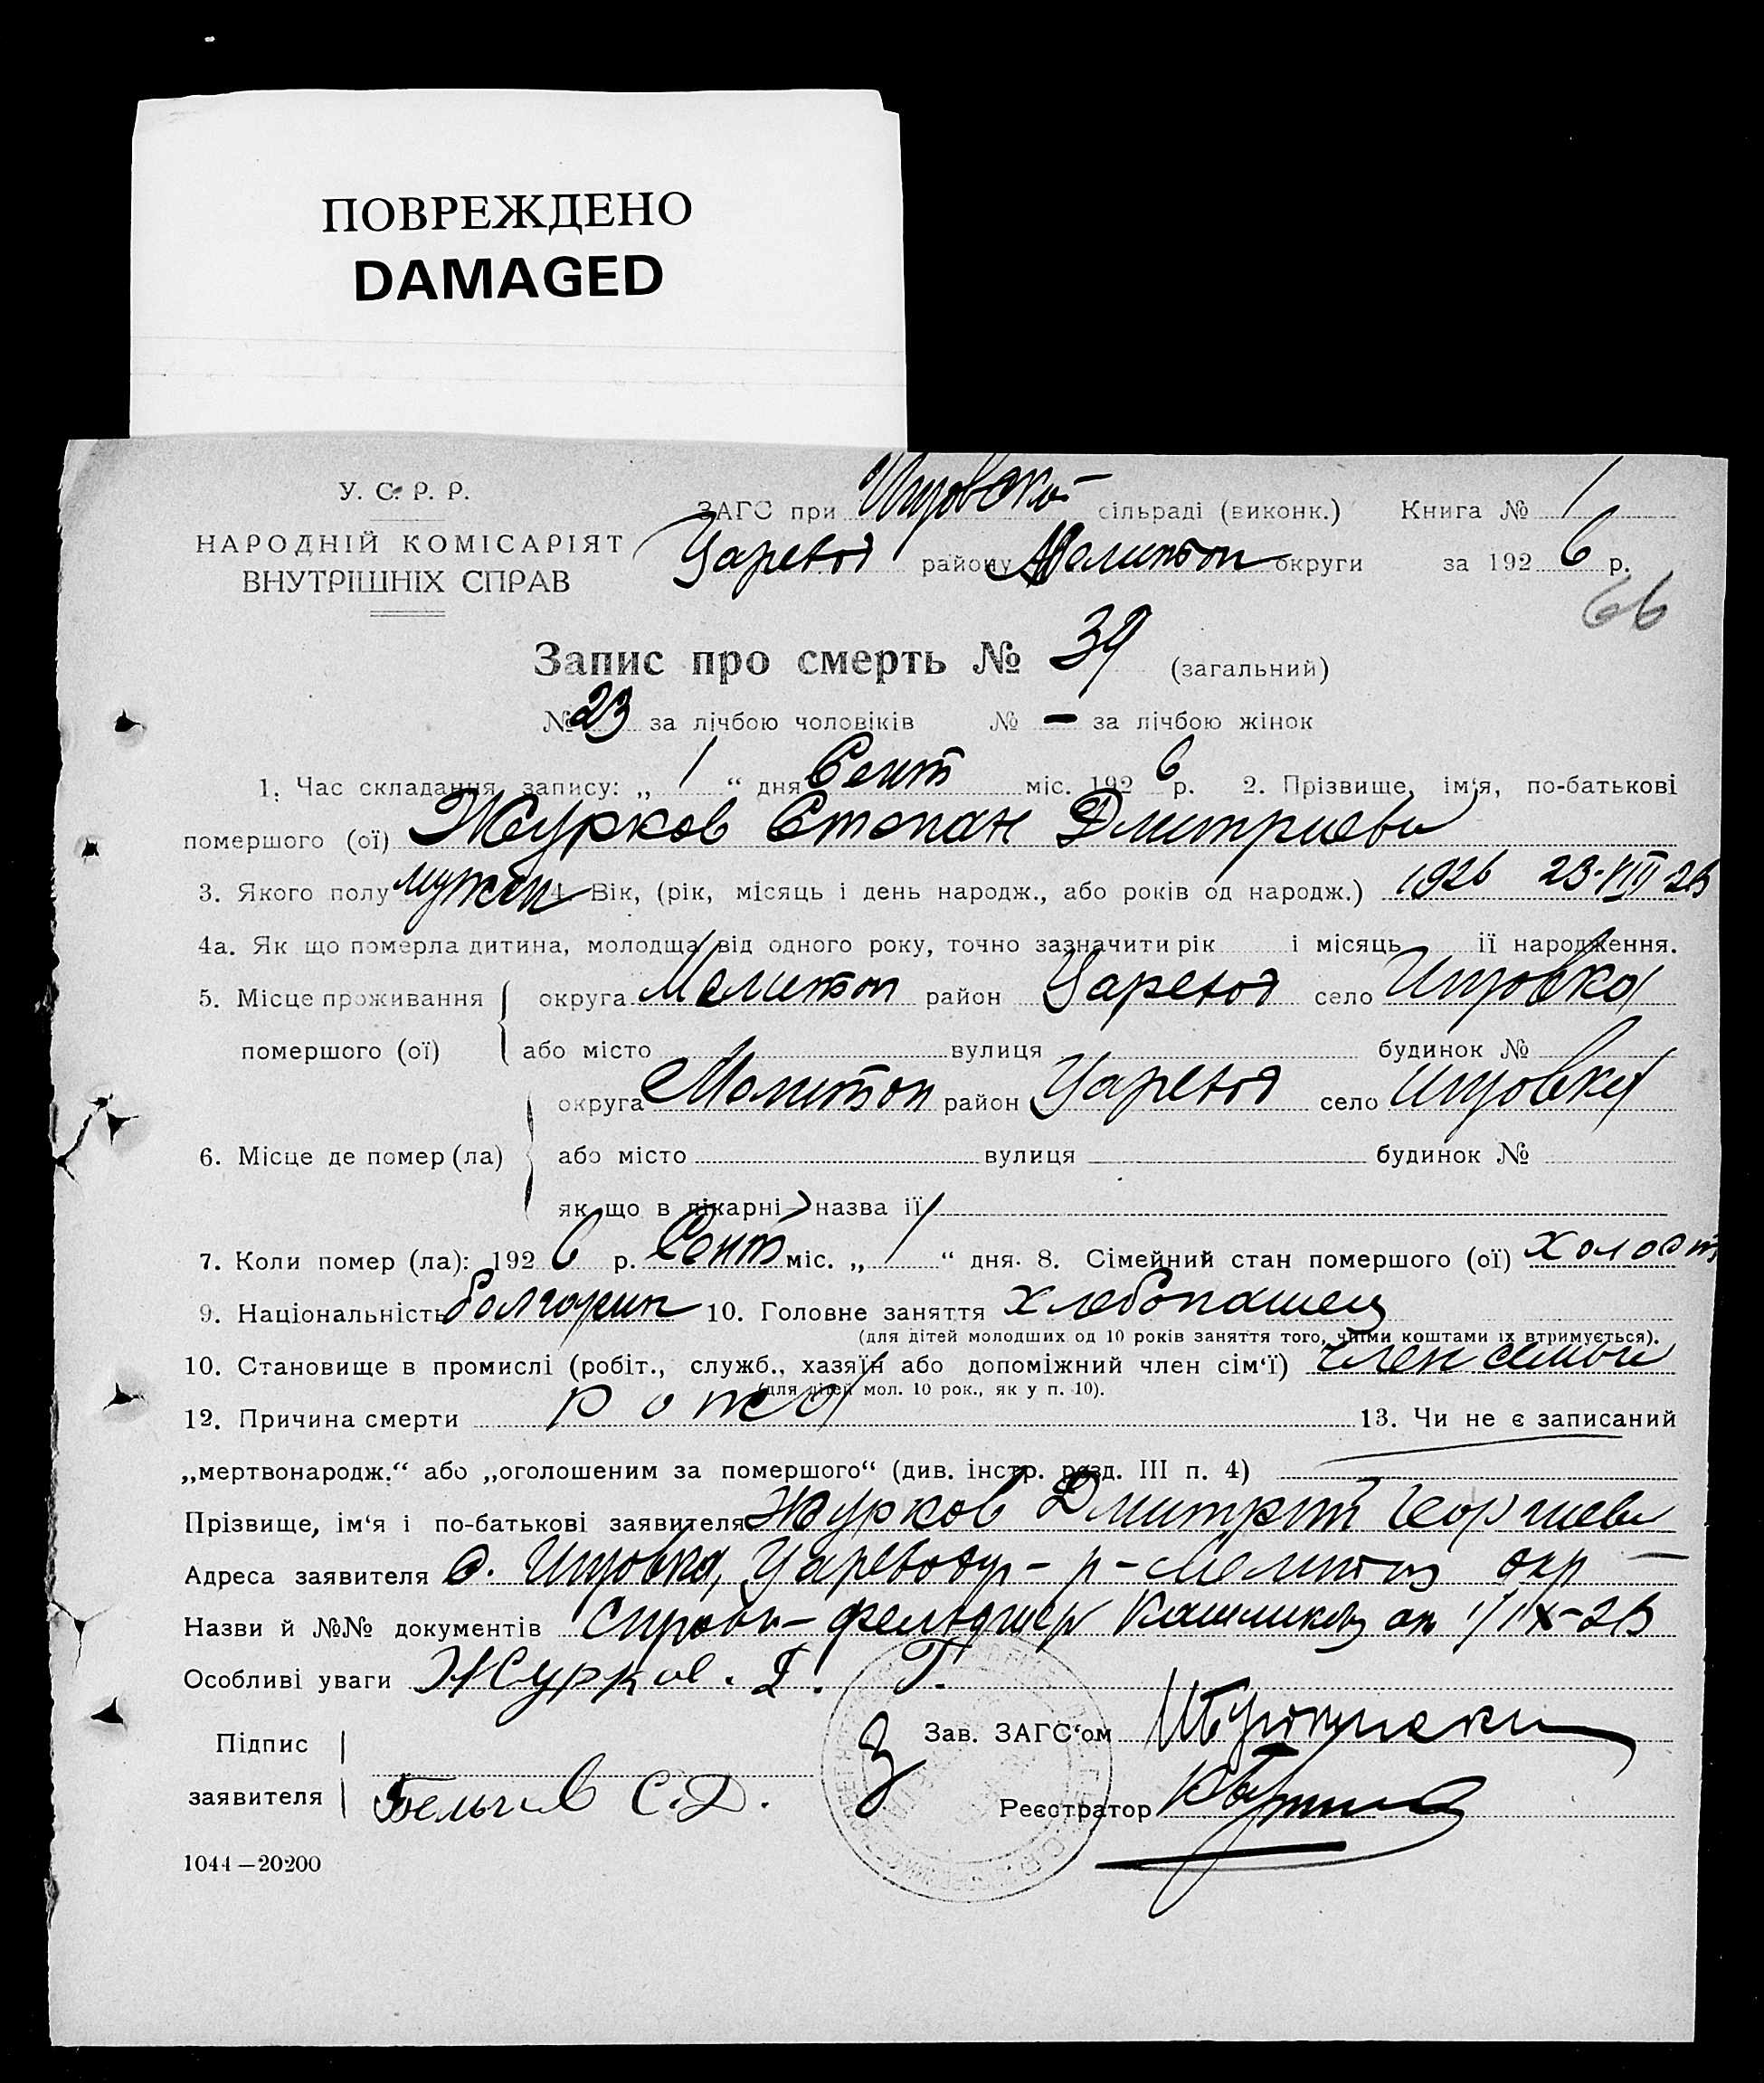 ПОВРЕЖДЕНО
DAMAGED
У. С. Р. Р.
НАРОДНІЙ КОМІСАРІЯТ
ВНУТРІШНІХ СПРАВ
ЗАГС при сільраді (виконк.) Книга № 1
Царевод району Мелитоп округи за 1926 р.
66
Запис про смерть № 39 (загальний)
№ 23 за лічбою чоловіків № — за лічбою жінок
1. Час складання запису: „ 1 “ дня Сент міс. 1926 р. 2. Прізвище, ім‘я, по-батькові
помершого (ої) Журков Степан Дмитриеви
3. Якого полу мужск 4. Вік, (рік, місяць і день народж., або років од народж.) 1926 23-VIII-26
4а. Як що померла дитина, молодща від одного року, точно зазначити рік і місяць її народження.
5. Місце проживання помершого (ої) округа Мелитоп район Царевод село
або місто вулиця будинок №
округа Мелитоп район Царевод село
6. Місце де помер (ла) або місто вулиця будинок №
як що в лікарні назва її
7. Коли помер (ла): 1926 р. Сент міс. „ 1 “ дня. 8. Сімейний стан помершого (ої) холост
9. Національність болгарин 10. Головне заняття хлебопашец
(для дітей молодших од 10 років заняття того, чиїми коштами їх втримується).
10. Становище в промислі (робіт., служб., хазяїн або допоміжний член сім‘ї) член семьи
(для дітей мол. 10 рок., як у п. 10).
12. Причина смерти рожа 13. Чи не є записаний
„мертвонародж.“ або „оголошеним за помершого“ (див. інстр. розд. III п. 4)
Прізвище, ім‘я і по-батькові заявителя Журков Дмитрий Георгиеви
Адреса заявителя с. р- Мелитоп окр
Назви й №№ документів фельдшер от 1/IX-26
Особливі уваги Журков. Д. Г.
Підпис
заявителя С. Д.
З
Зав. ЗАГС‘ом
Реєстратор
1044—20200